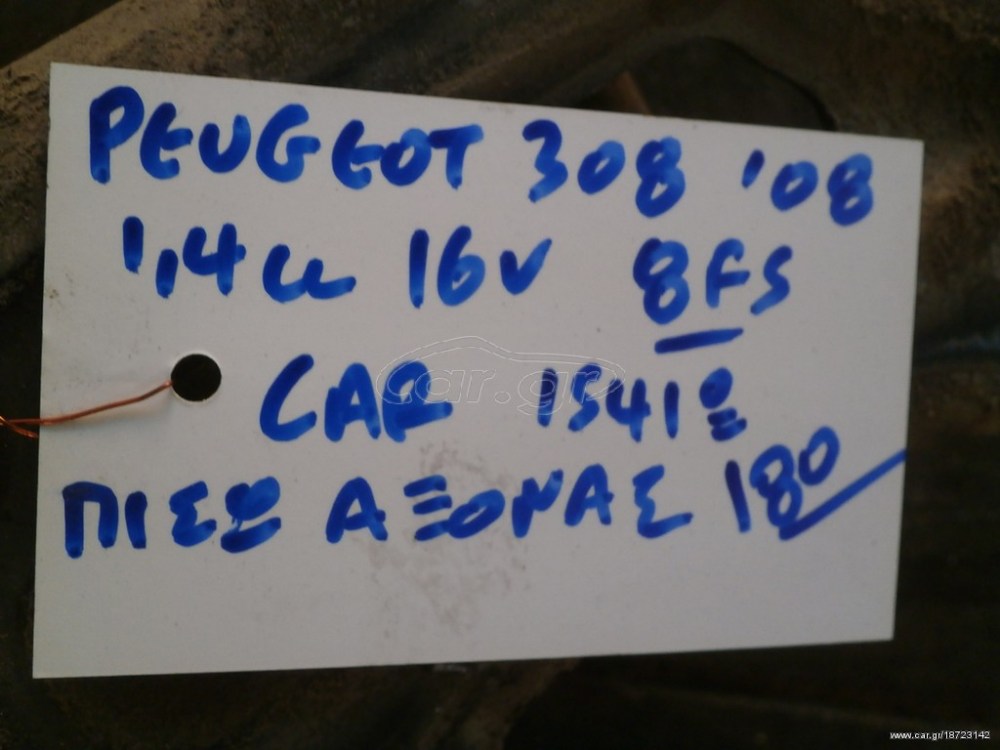 PEUGEOT 308 '08
1,4cc 16v 8FS
CAR 1541
ΠΙΣΩ ΑΞΟΝΑΣ 180
car.gr
www.car.gr/18723142